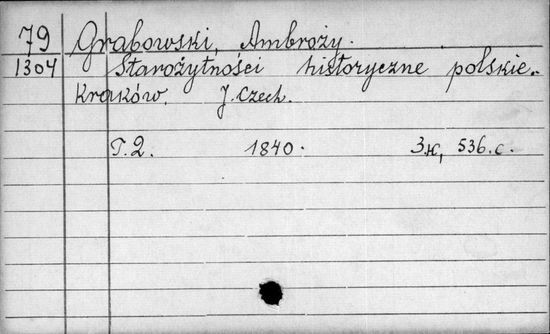 79 Grabowski, Ambroży.
1304 Starożytności historyczne polskie..
Kraków. J. Czech.
T. 2. 1840. 3 н, 536. с.